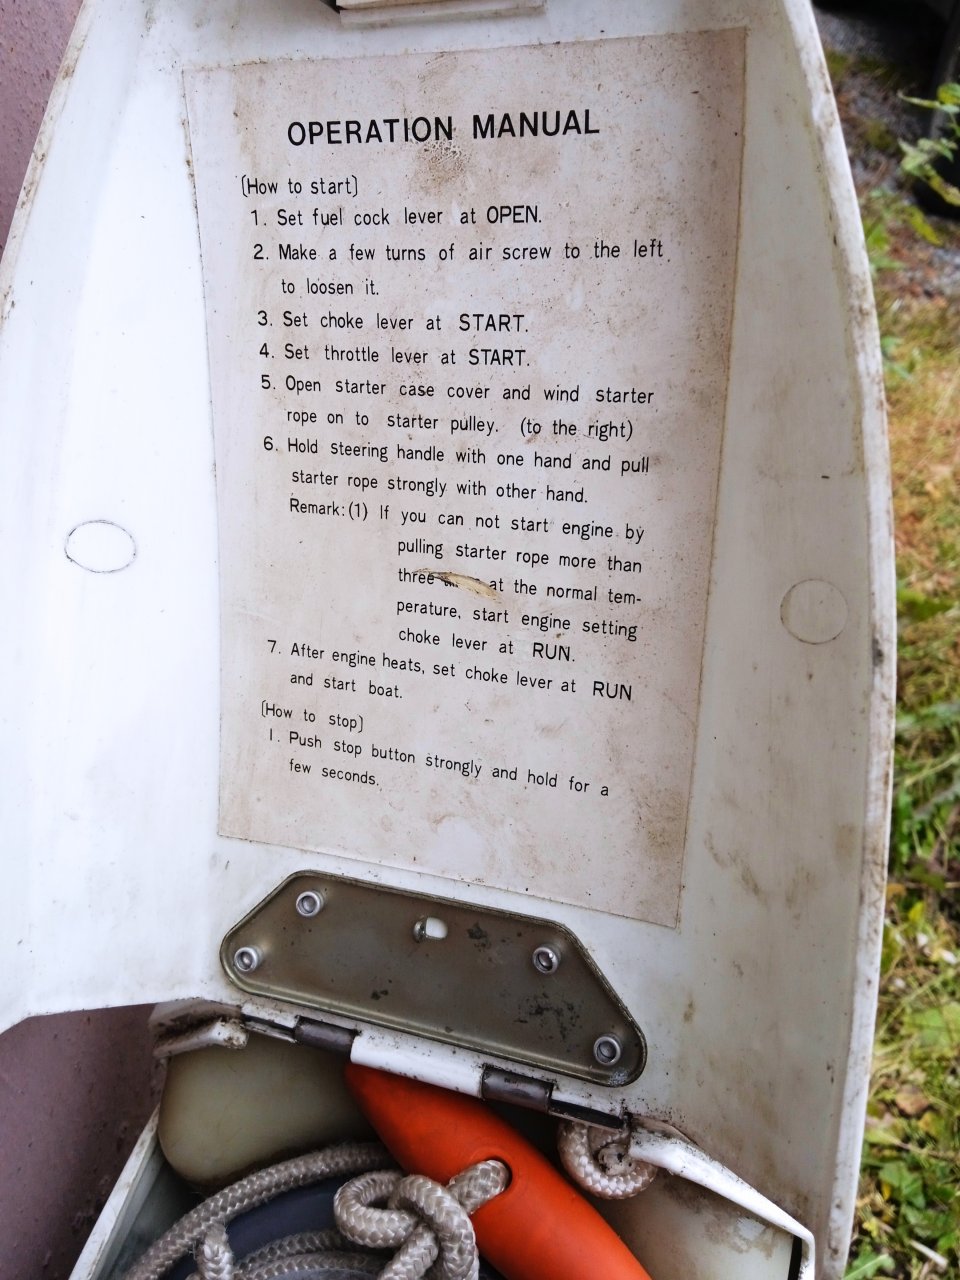 OPERATION MANUAL
(How to start)
1. Set fuel cock lever at OPEN.
2. Make a few turns of air screw to the left
to loosen it.
3. Set choke lever at START.
4. Set throttle lever at START.
5. Open starter case cover and wind starter
rope on to starter pulley. (to the right)
6. Hold steering handle with one hand and pull
starter rope strongly with other hand.
Remark: (1) If you can not start engine by
pulling starter rope more than
three at the normal tem-
perature, start engine setting
choke lever at RUN.
7. After engine heats, set choke lever at RUN
and start boat.
(How to stop)
1. Push stop button strongly and hold for a
few seconds.